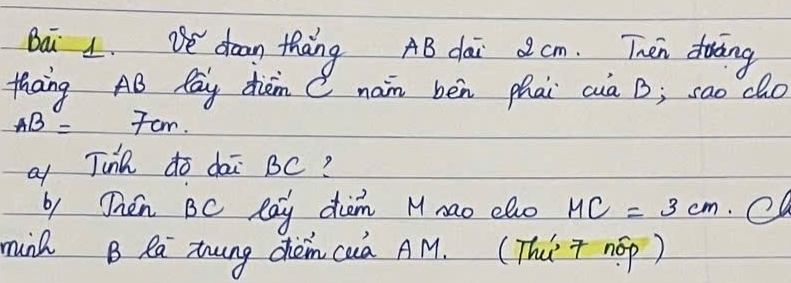 Bài 1. Vẽ đoạn thẳng AB dài 2 cm. Trên đường
thẳng AB lấy điểm C nằm bên phải của B; sao cho
AB = 7cm.
a/ Tính độ dài BC?
b/ Trên BC lấy điểm M sao cho MC = 3 cm. Ch
minh B là trung điểm của AM. (Thứ 7 nộp)